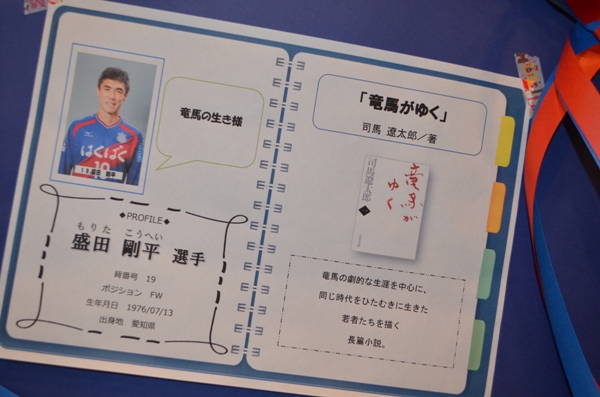 はくばく
19
19 盛田 剛平
竜馬の生き様
◆PROFILE◆
もりた こうへい
盛田 剛平 選手
背番号 19
ポジション FW
生年月日 1976/07/13
出身地 愛知県
「竜馬がゆく」
司馬 遼太郎／著
竜馬が
ゆく
司馬遼太郎
竜馬の劇的な生涯を中心に、
同じ時代をひたむきに生きた
若者たちを描く
長篇小説。